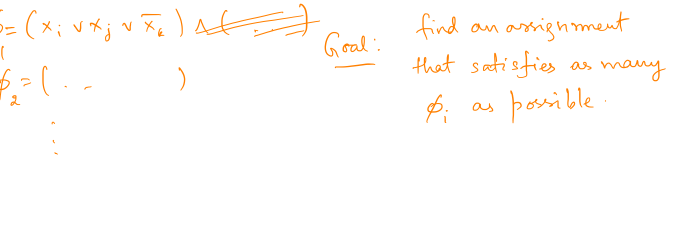 ϕ₁ = (xᵢ ∨ xⱼ ∨ x̄ₖ)
Goal: find an assignment
that satisfies as many
ϕᵢ as possible.
ϕ₂ = ( . . )
⋮